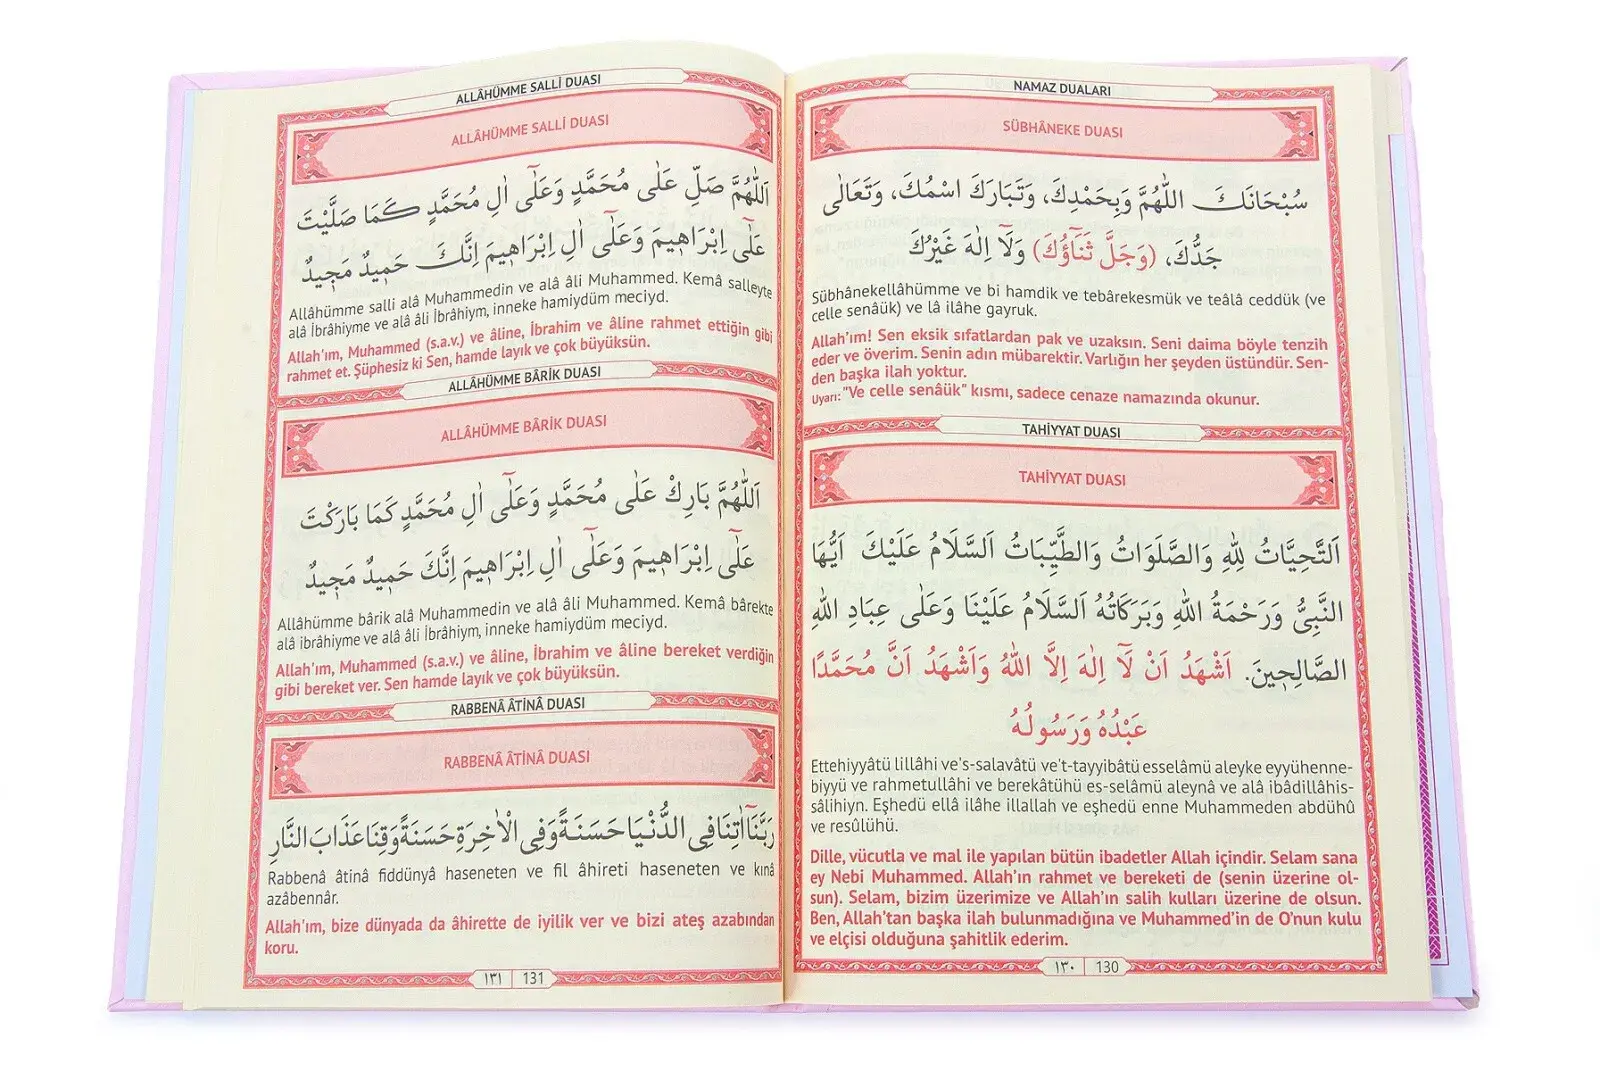 NAMAZ DUALARI
SÜBHÂNEKE DUASI
سُبْحَانَكَ اللّٰهُمَّ وَبِحَمْدِكَ، وَتَبَارَكَ اسْمُكَ، وَتَعَالٰى
جَدُّكَ، (وَجَلَّ ثَنَٓاؤُكَ) وَلَٓا اِلٰهَ غَيْرُكَ
Sübhânekellâhümme ve bi hamdik ve tebârekesmük ve teâlâ ceddük (ve
celle senâük) ve lâ ilâhe gayruk.
Allah'ım! Sen eksik sıfatlardan pak ve uzaksın. Seni daima böyle tenzih
eder ve överim. Senin adın mübarektir. Varlığın her şeyden üstündür. Sen-
den başka ilah yoktur.
Uyarı: "Ve celle senâük" kısmı, sadece cenaze namazında okunur.
TAHİYYAT DUASI
TAHİYYAT DUASI
اَلتَّحِيَّاتُ لِلّٰهِ وَالصَّلَوَاتُ وَالطَّيِّبَاتُ اَلسَّلَامُ عَلَيْكَ اَيُّهَا
النَّبِىُّ وَرَحْمَةُ اللّٰهِ وَبَرَكَاتُهُ اَلسَّلَامُ عَلَيْنَا وَعَلٰى عِبَادِ اللّٰهِ
الصَّالِحٖينَ. اَشْهَدُ اَنْ لَٓا اِلٰهَ اِلَّا اللّٰهُ وَاَشْهَدُ اَنَّ مُحَمَّدًا
عَبْدُهُ وَرَسُولُهُ
Ettehiyyâtü lillâhi ve's-salavâtü ve't-tayyibâtü esselâmü aleyke eyyühenne-
biyyü ve rahmetullâhi ve berekâtühü es-selâmü aleynâ ve alâ ibâdillâhis-
sâlihiyn. Eşhedü ellâ ilâhe illallah ve eşhedü enne Muhammeden abdühû
ve resûlühü.
Dille, vücutla ve mal ile yapılan bütün ibadetler Allah içindir. Selam sana
ey Nebi Muhammed. Allah'ın rahmet ve bereketi de (senin üzerine ol-
sun). Selam, bizim üzerimize ve Allah'ın salih kulları üzerine de olsun.
Ben, Allah'tan başka ilah bulunmadığına ve Muhammed'in de O'nun kulu
ve elçisi olduğuna şahitlik ederim.
١٣٠ 130
ALLÂHÜMME SALLİ DUASI
ALLÂHÜMME SALLİ DUASI
اَللّٰهُمَّ صَلِّ عَلٰى مُحَمَّدٍ وَعَلٰٓى اٰلِ مُحَمَّدٍ كَمَا صَلَّيْتَ
عَلٰٓى اِبْرَاهٖيمَ وَعَلٰٓى اٰلِ اِبْرَاهٖيمَ اِنَّكَ حَمٖيدٌ مَجٖيدٌ
Allâhümme salli alâ Muhammedin ve alâ âli Muhammed. Kemâ salleyte
alâ İbrâhiyme ve alâ âli İbrâhiym, inneke hamiydüm meciyd.
Allah'ım, Muhammed (s.a.v.) ve âline, İbrahim ve âline rahmet ettiğin gibi
rahmet et. Şüphesiz ki Sen, hamde layık ve çok büyüksün.
ALLÂHÜMME BÂRİK DUASI
ALLÂHÜMME BÂRİK DUASI
اَللّٰهُمَّ بَارِكْ عَلٰى مُحَمَّدٍ وَعَلٰٓى اٰلِ مُحَمَّدٍ كَمَا بَارَكْتَ
عَلٰٓى اِبْرَاهٖيمَ وَعَلٰٓى اٰلِ اِبْرَاهٖيمَ اِنَّكَ حَمٖيدٌ مَجٖيدٌ
Allâhümme bârik alâ Muhammedin ve alâ âli Muhammed. Kemâ bârekte
alâ ibrâhiyme ve alâ âli İbrâhiym, inneke hamiydüm meciyd.
Allah'ım, Muhammed (s.a.v.) ve âline, İbrahim ve âline bereket verdiğin
gibi bereket ver. Sen hamde layık ve çok büyüksün.
RABBENÂ ÂTİNÂ DUASI
RABBENÂ ÂTİNÂ DUASI
رَبَّنَٓا اٰتِنَا فِى الدُّنْيَا حَسَنَةً وَفِى الْاٰخِرَةِ حَسَنَةً وَقِنَا عَذَابَ النَّارِ
Rabbenâ âtinâ fiddünyâ haseneten ve fil âhireti haseneten ve kınâ
azâbennâr.
Allah'ım, bize dünyada da âhirette de iyilik ver ve bizi ateş azabından
koru.
١٣١ 131